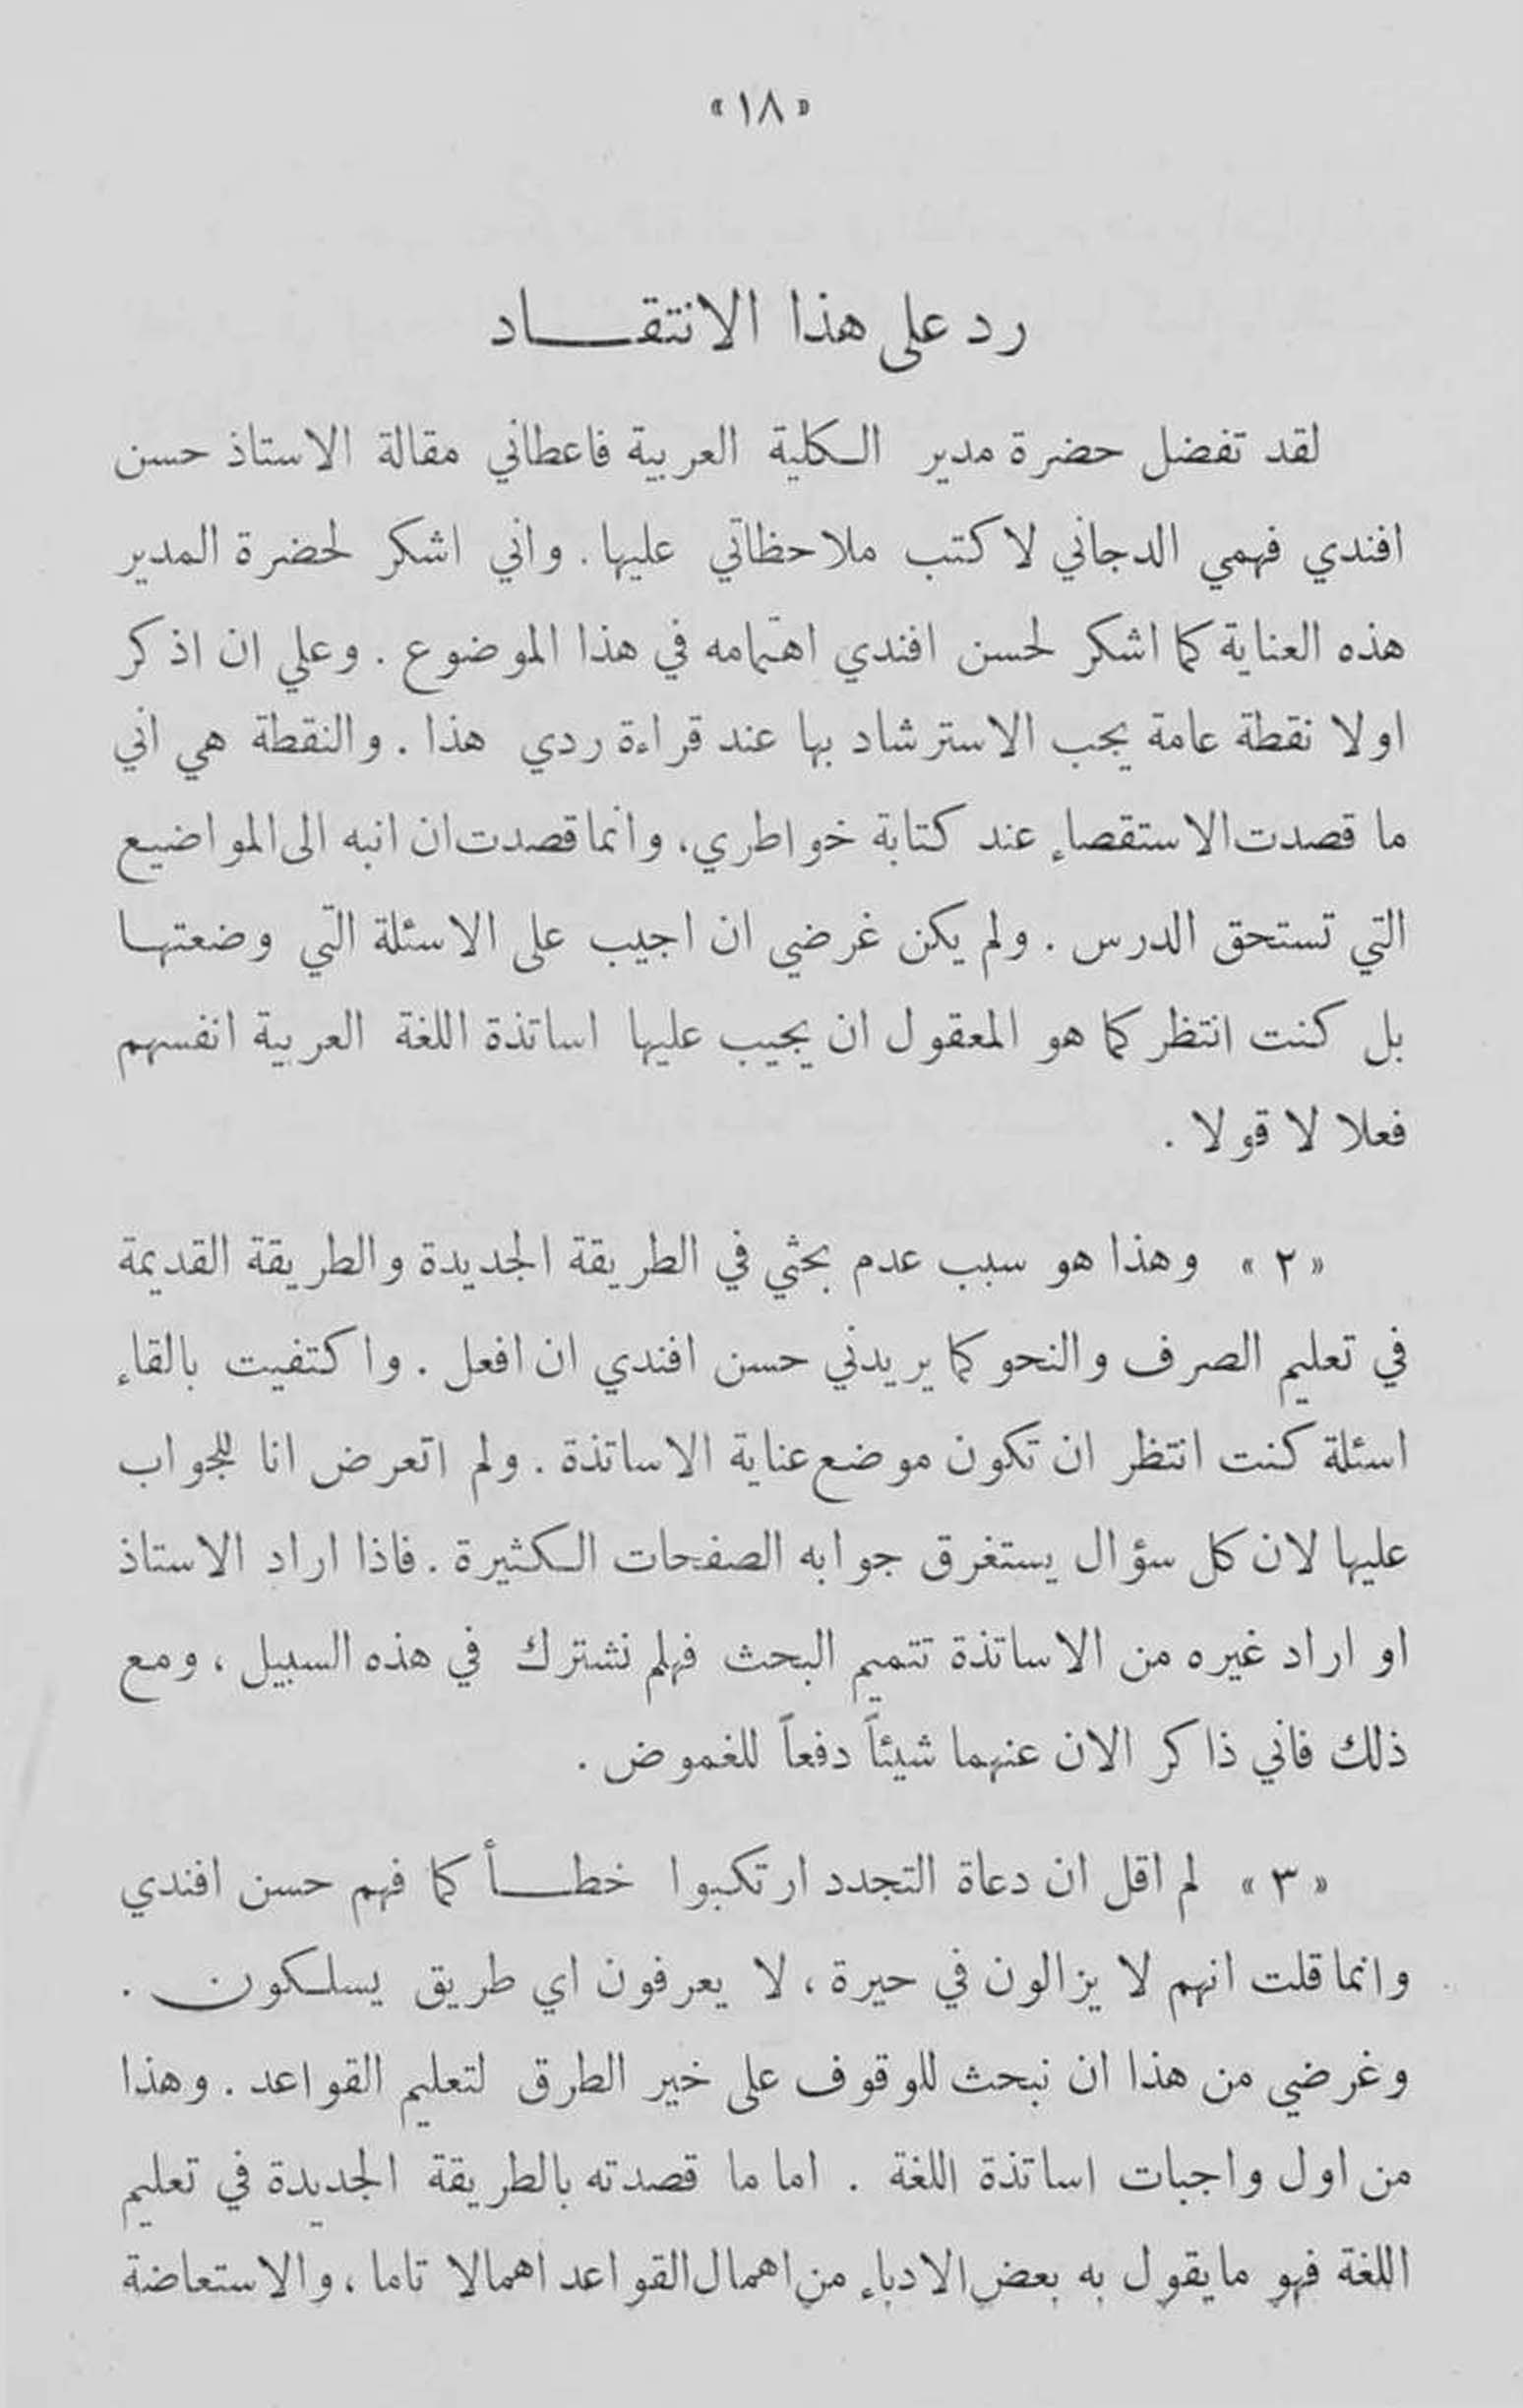 «١٨»
رد على هذا الانتقـــاد
لقد تفضل حضرة مدير الكلية العربية فاعطاني مقالة الاستاذ حسن
افندي فهمي الدجاني لاكتب ملاحظاتي عليها. واني اشكر لحضرة المدير
هذه العناية كما اشكر لحسن افندي اهتمامه في هذا الموضوع . وعلي ان اذكر
اولا نقطة عامة يجب الاسترشاد بها عند قراءة ردي هذا . والنقطة هي اني
ما قصدت الاستقصاء عند كتابة خواطري، وانما قصدت ان انبه الى المواضيع
التي تستحق الدرس . ولم يكن غرضي ان اجيب على الاسئلة التي وضعتهـا
بل كنت انتظر كما هو المعقول ان يجيب عليها اساتذة اللغة العربية انفسهم
فعلا لا قولا .
«٢» وهذا هو سبب عدم بحثي في الطريقة الجديدة والطريقة القديمة
في تعليم الصرف والنحو كما يريدني حسن افندي ان افعل . واكتفيت بالقاء
اسئلة كنت انتظر ان تكون موضع عناية الاساتذة . ولم اتعرض انا للجواب
عليها لان كل سؤال يستغرق جوابه الصفحات الكثيرة . فاذا اراد الاستاذ
او اراد غيره من الاساتذة تتميم البحث فهلم نشترك في هذه السبيل ، ومع
ذلك فاني ذاكر الان عنهما شيئاً دفعاً للغموض .
«٣» لم اقل ان دعاة التجدد ارتكبوا خطــأ كما فهم حسن افندي
وانما قلت انهم لا يزالون في حيرة ، لا يعرفون اي طريق يسلكون .
وغرضي من هذا ان نبحث للوقوف على خير الطرق لتعليم القواعد . وهذا
من اول واجبات اساتذة اللغة . اما ما قصدته بالطريقة الجديدة في تعليم
اللغة فهو مايقول به بعض الادباء من اهمال القواعد اهمالا تاما ، والاستعاضة